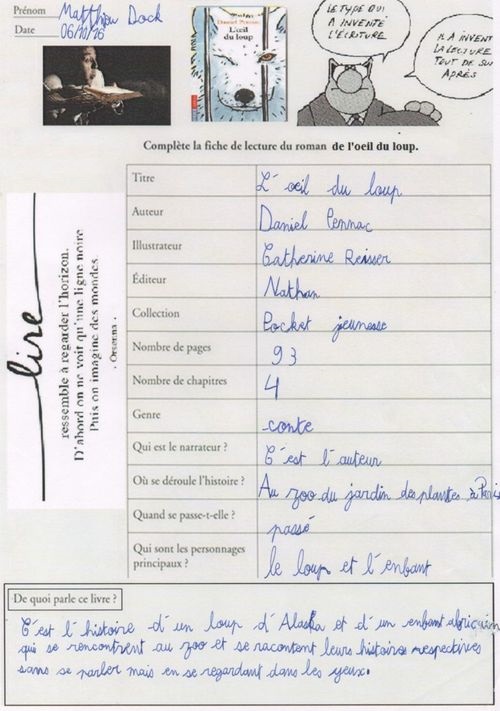 Prénom Matthieu Dock
Date 06/10/16
Daniel Pennac
L'œil
du loup
LE TYPE QUI
A INVENTÉ
L'ÉCRITURE
IL A INVENTÉ
LA LECTURE
TOUT DE SUITE
APRÈS
Complète la fiche de lecture du roman de l'oeil du loup.
lire
ressemble à regarder l'horizon.
D'abord on ne voit qu'une ligne noire
Puis on imagine des mondes.
- Orsenna -
Titre L'œil du loup
Auteur Daniel Pennac
Illustrateur Catherine Reisser
Éditeur Nathan
Collection Pocket jeunesse
Nombre de pages 93
Nombre de chapitres 4
Genre conte
Qui est le narrateur ? C'est l'auteur
Où se déroule l'histoire ? Au zoo du jardin des plantes à Paris
Quand se passe-t-elle ? passé
Qui sont les personnages
principaux ? le loup et l'enfant
De quoi parle ce livre ?
C'est l'histoire d'un loup d'Alaska et d'un enfant africain
qui se rencontrent au zoo et se racontent leurs histoires respectives
sans se parler mais en se regardant dans les yeux.